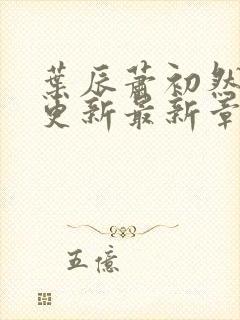 葉辰蕭初然
更新最新章
五億